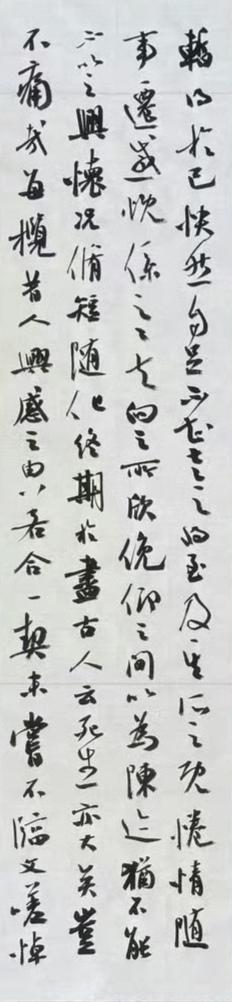 暫得於己快然自足不知老之将至及其所之既惓情随
事遷感慨係之矣向之所欣俛仰之間以為陳迹猶不能
不以之興懷况脩短随化終期於盡古人云死生亦大矣豈
不痛哉每攬昔人興感之由若合一契未嘗不臨文嗟悼